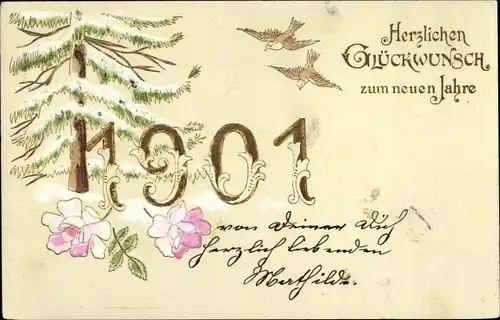 Herzlichen
GLÜCKWUNSCH
zum neuen Jahre
1901
von Deiner Dich
herzlich liebenden
Mathilde.